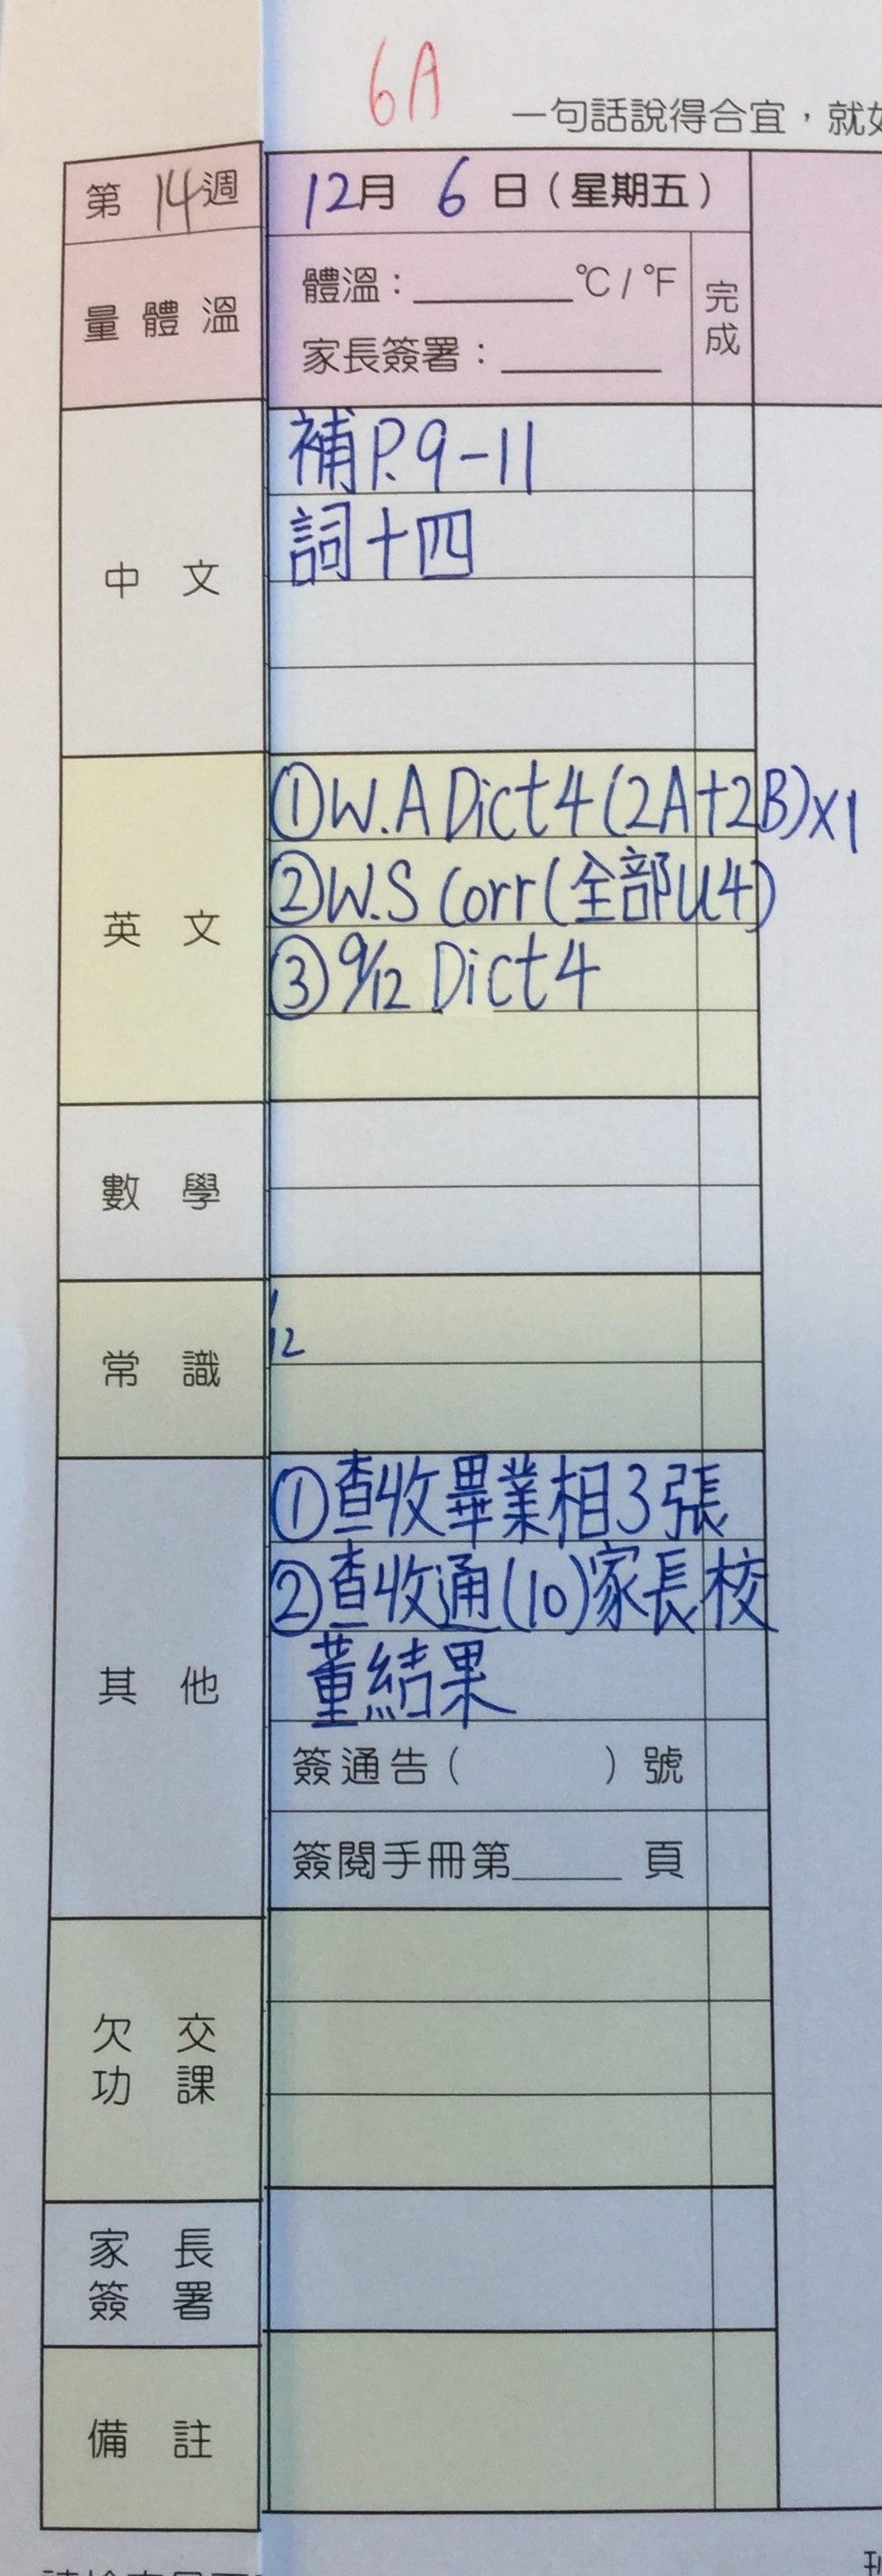 6A
一句話說得合宜，就如
第14週
12月 6 日（星期五）
量體溫
體溫：______℃ / ℉
家長簽署：______
完成
中文
補P.9-11
詞十四
英文
①W.A Dict4(2A+2B)x1
②W.S Corr(全部U4)
③9/12 Dict4
數學
常識
/12
其他
①查收畢業相3張
②查收通(10)家長校
董結果
簽通告（ ）號
簽閱手冊第______頁
欠交
功課
家長
簽署
備註